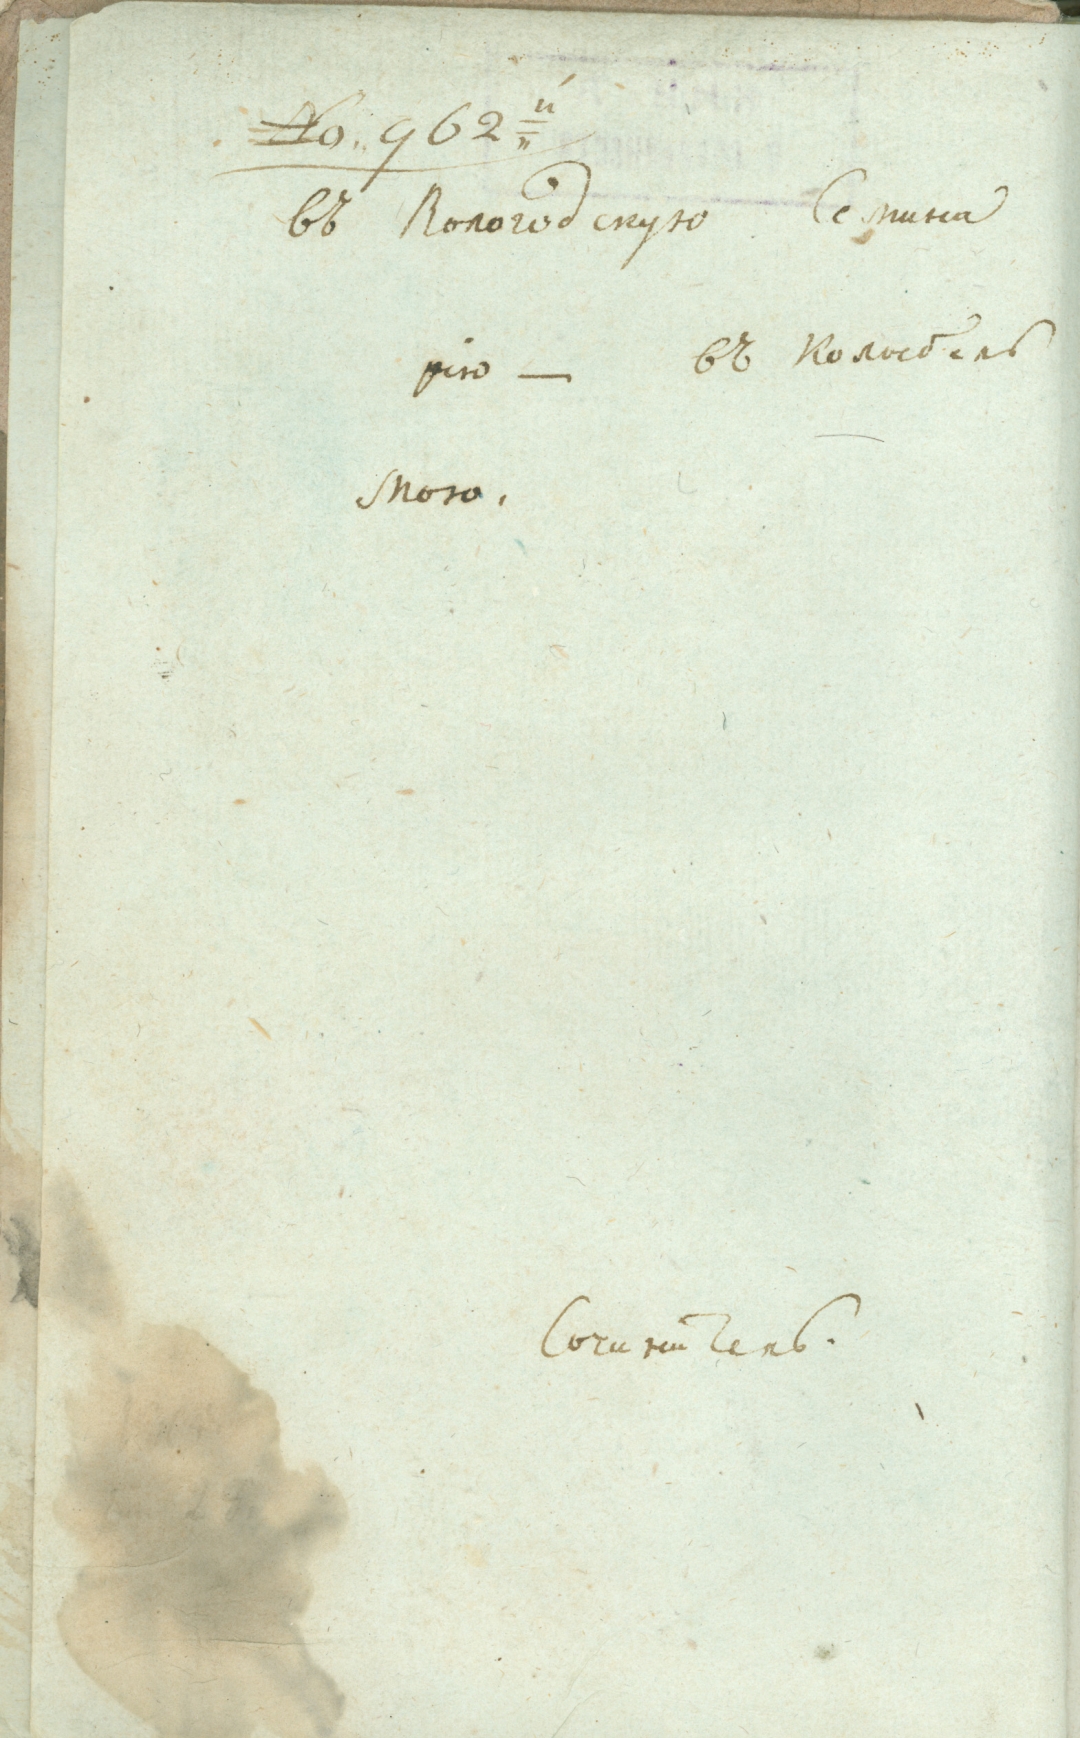 No. 962й
въ Вологодскую Семина
рію — въ колыбель
мою.
Сочинитель.